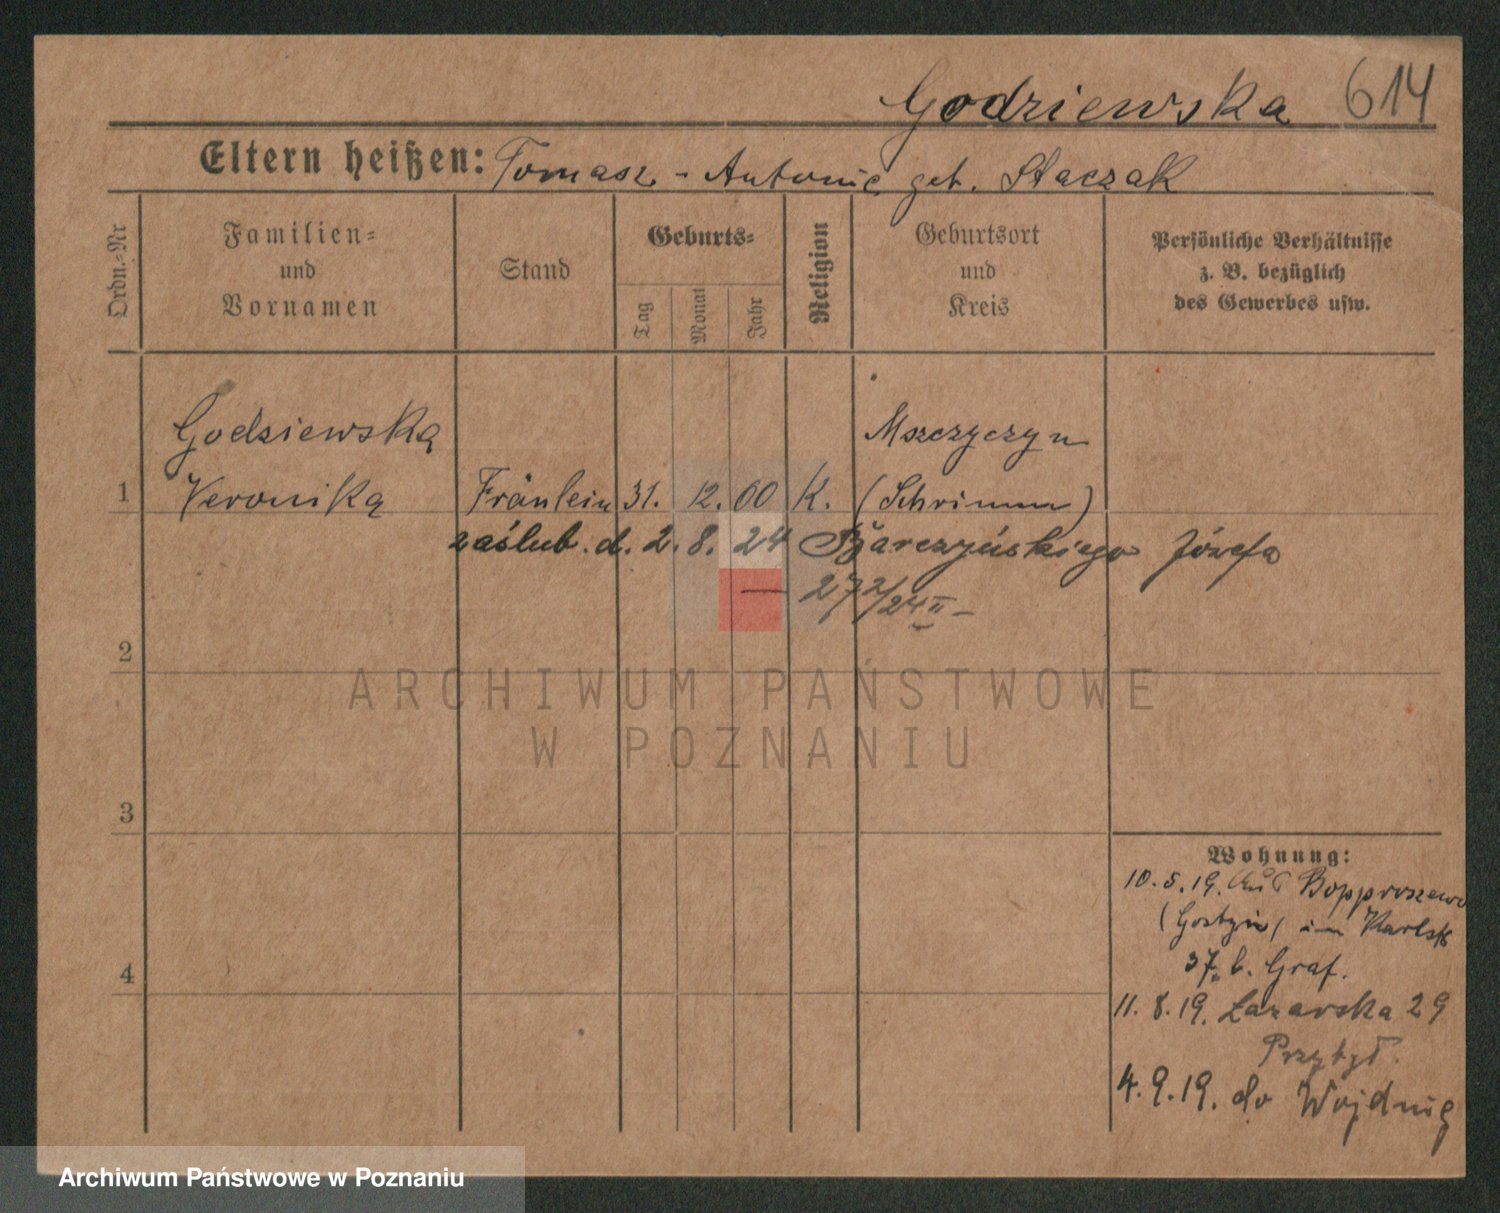 Godziewska 614
Eltern heißen: Tomasz - Antonie geb. Staczak
Ordn.-Nr
Familien-
und
Vornamen
Stand
Geburts-
Tag
Monat
Jahr
Religion
Geburtsort
und
Kreis
Persönliche Verhältnisse
z. B. bezüglich
des Gewerbes usw.
Godziewska Mszczyczyn
1 Veronika Fräulein 31. 12. 00 K. (Schrimm)
zaślub. d. 2. 8. 24 Józefa
2
ARCHIWUM PAŃSTWOWE
W POZNANIU
3
Wohnung:
10. 5. 19. Aus
(Gostyn) in Karlstr
37 b. Graf.
4
11. 8. 19. Łazarska 29
Przybył.
4. 9. 19. do
Archiwum Państwowe w Poznaniu